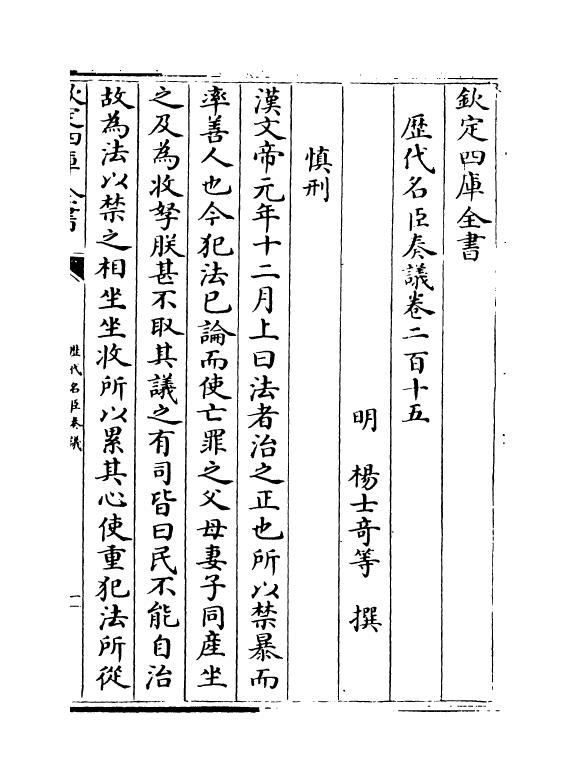 欽定四庫全書
歷代名臣奏議卷二百十五
明 楊士奇等 撰
慎刑
漢文帝元年十二月上曰法者治之正也所以禁暴而
率善人也今犯法已論而使亡罪之父母妻子同産坐
之及為收孥朕甚不取其議之有司皆曰民不能自治
故為法以禁之相坐坐收所以累其心使重犯法所從
欽定四庫全書
歷代名臣奏議
一